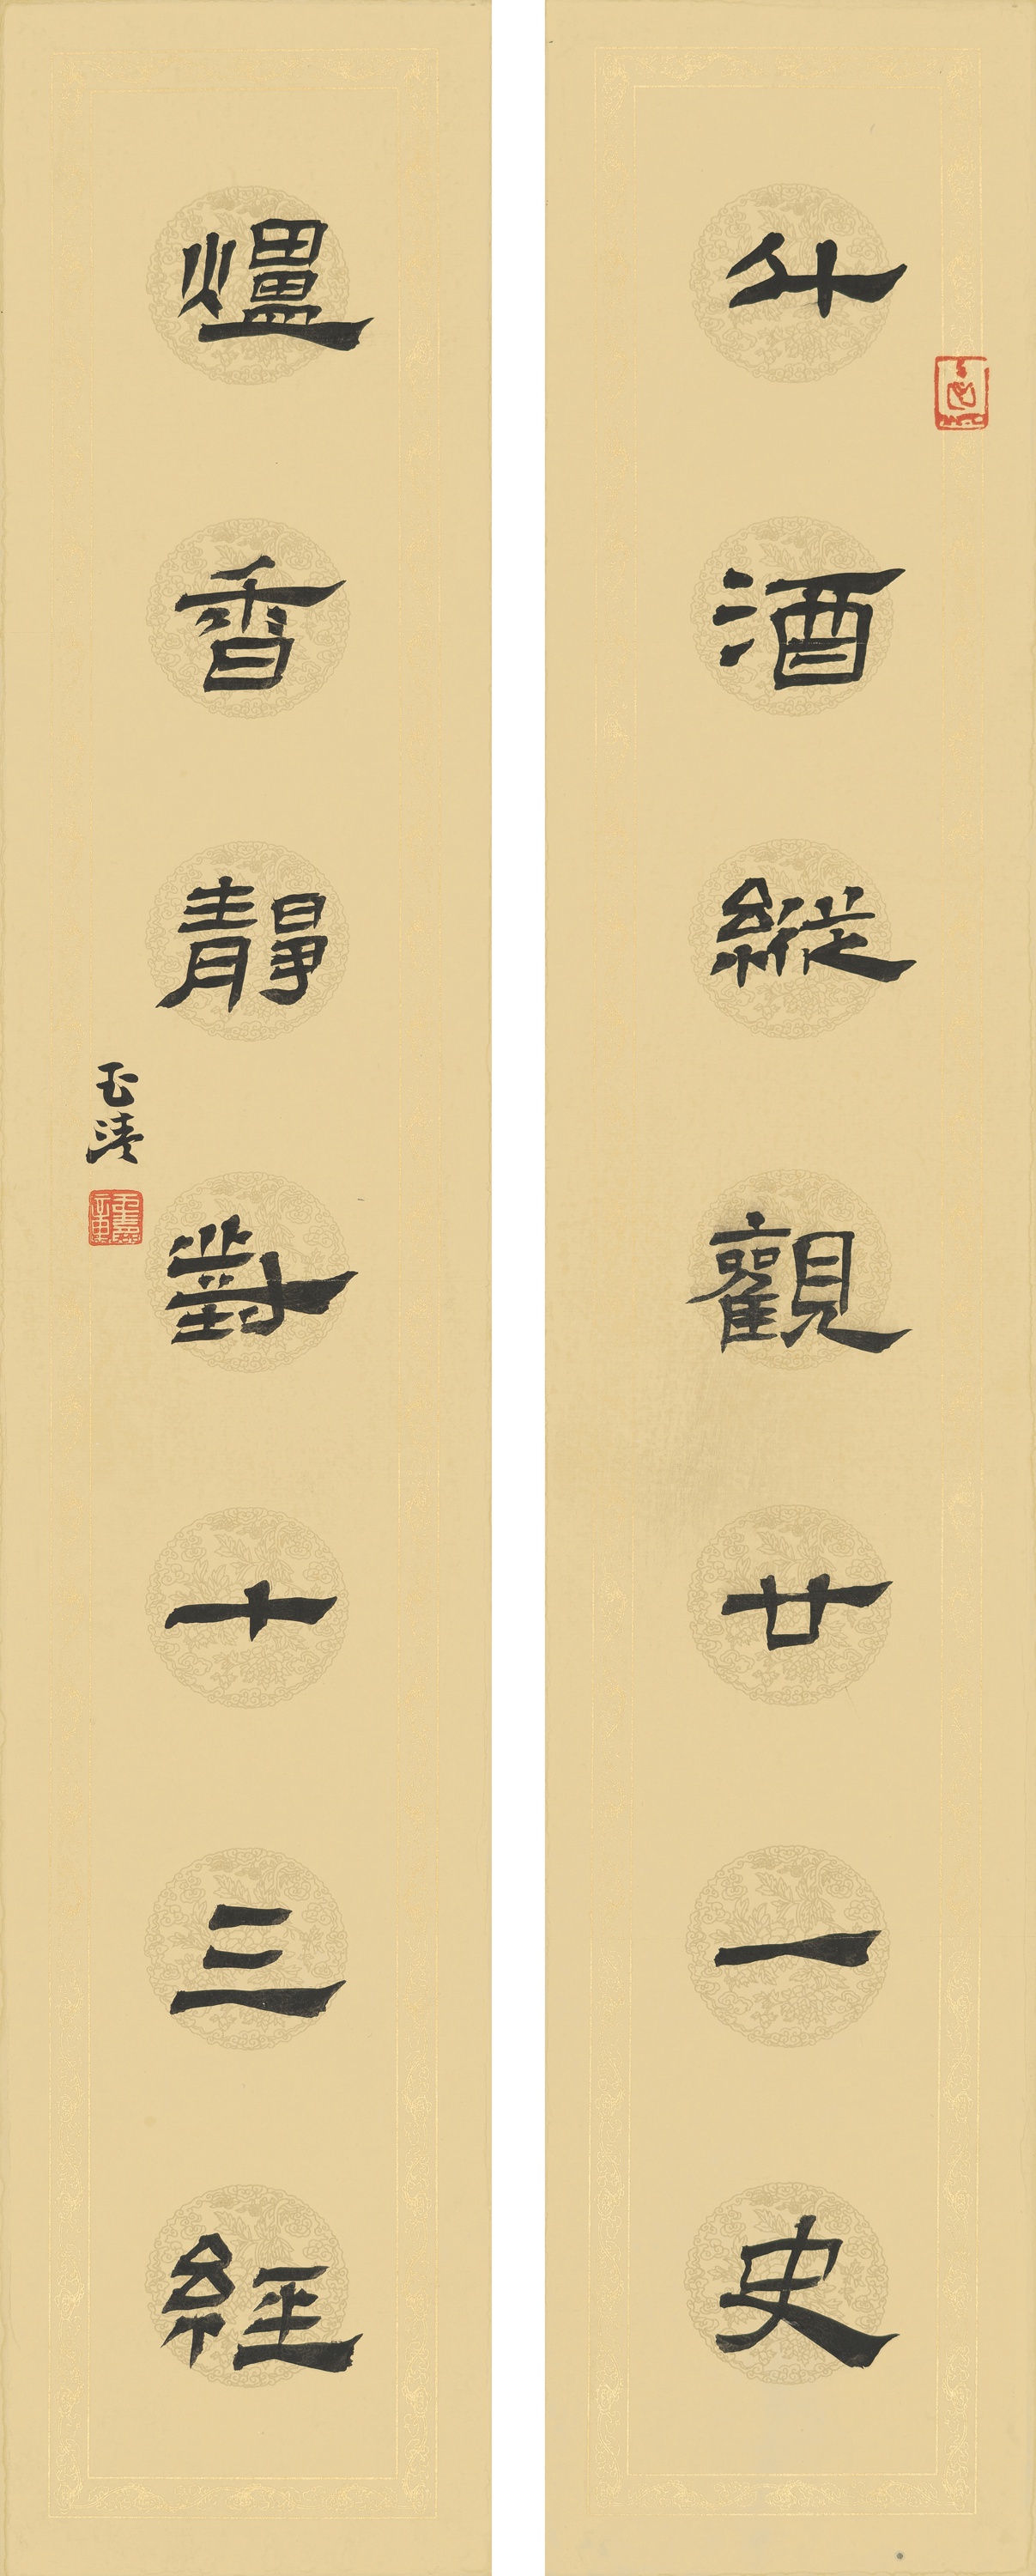 斗酒縱觀廿一史
爐香靜對十三經
玉